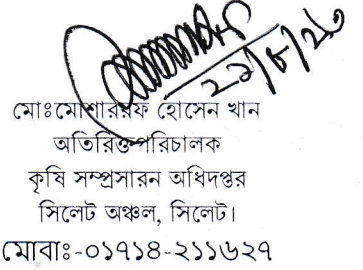 ২১/৮/২৩
মোঃমোশাররফ হোসেন খান
অতিরিক্তপরিচালক
কৃষি সম্প্রসারন অধিদপ্তর
সিলেট অঞ্চল, সিলেট।
মোবাঃ-০১৭১৪-২১১৬২৭